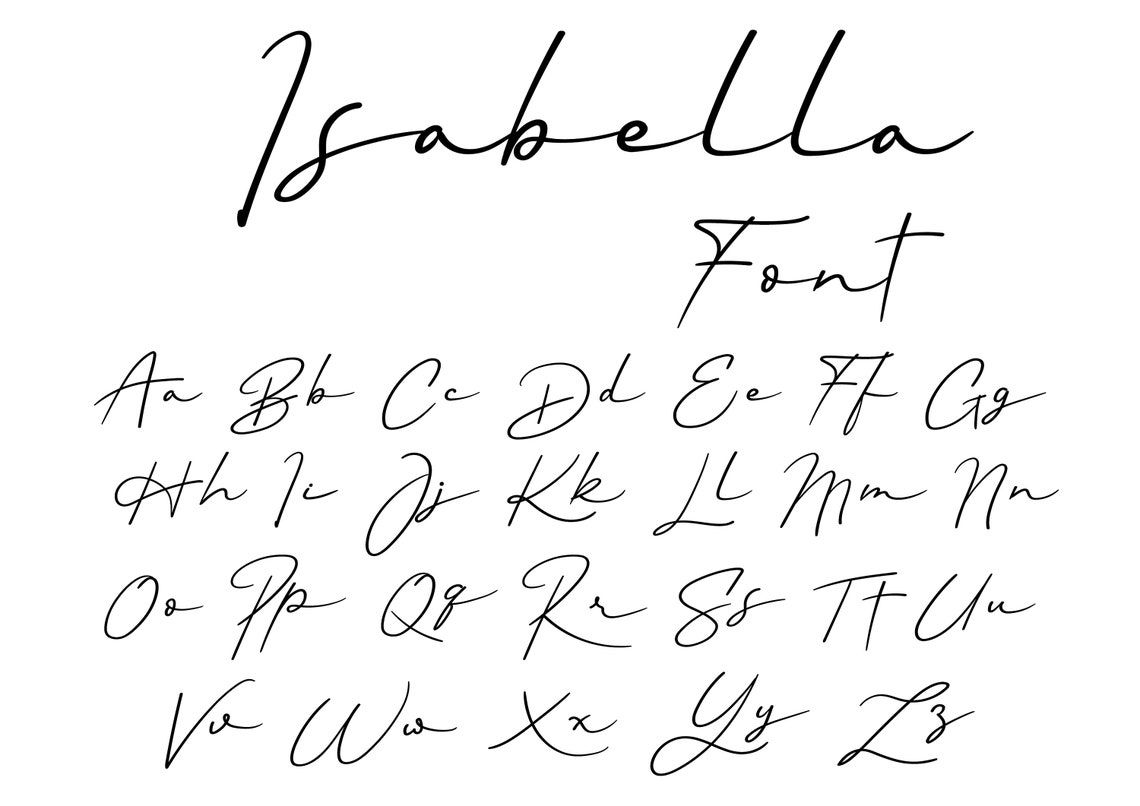 Isabella
Font
Aa Bb Cc Dd Ee Ff Gg
Hh Ii Jj Kk Ll Mm Nn
Oo Pp Qq Rr Ss Tt Uu
Vv Ww Xx Yy Zz